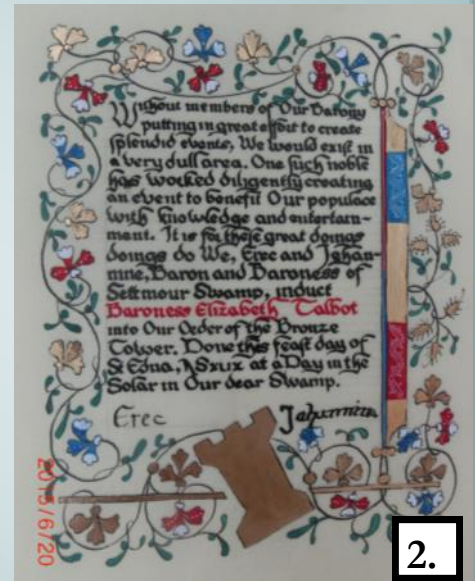 Without members of Our Barony
putting in great effort to create
splendid events, We would exist in
a very dull area. One such noble
has worked diligently creating
an event to benefit Our populace
with knowledge and entertain-
ment. It is for these great doings
doings do We, Erec and Jehan-
nine, Baron and Baroness of
Settmour Swamp, induct
Baroness Elizabeth Talbot
into Our Order of the Bronze
Tower. Done this feast day of
St Edna, at a Day in the
Solar in Our dear Swamp.
Erec Jehannine
2015/6/20
2.